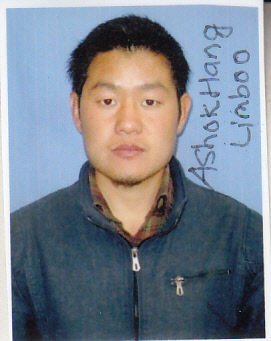 Ashok Hang
Limboo